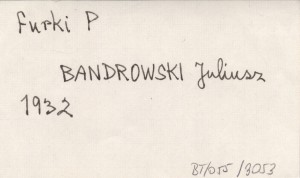 Furki P
BANDROWSKI Juliusz
1932
BT/055/3053